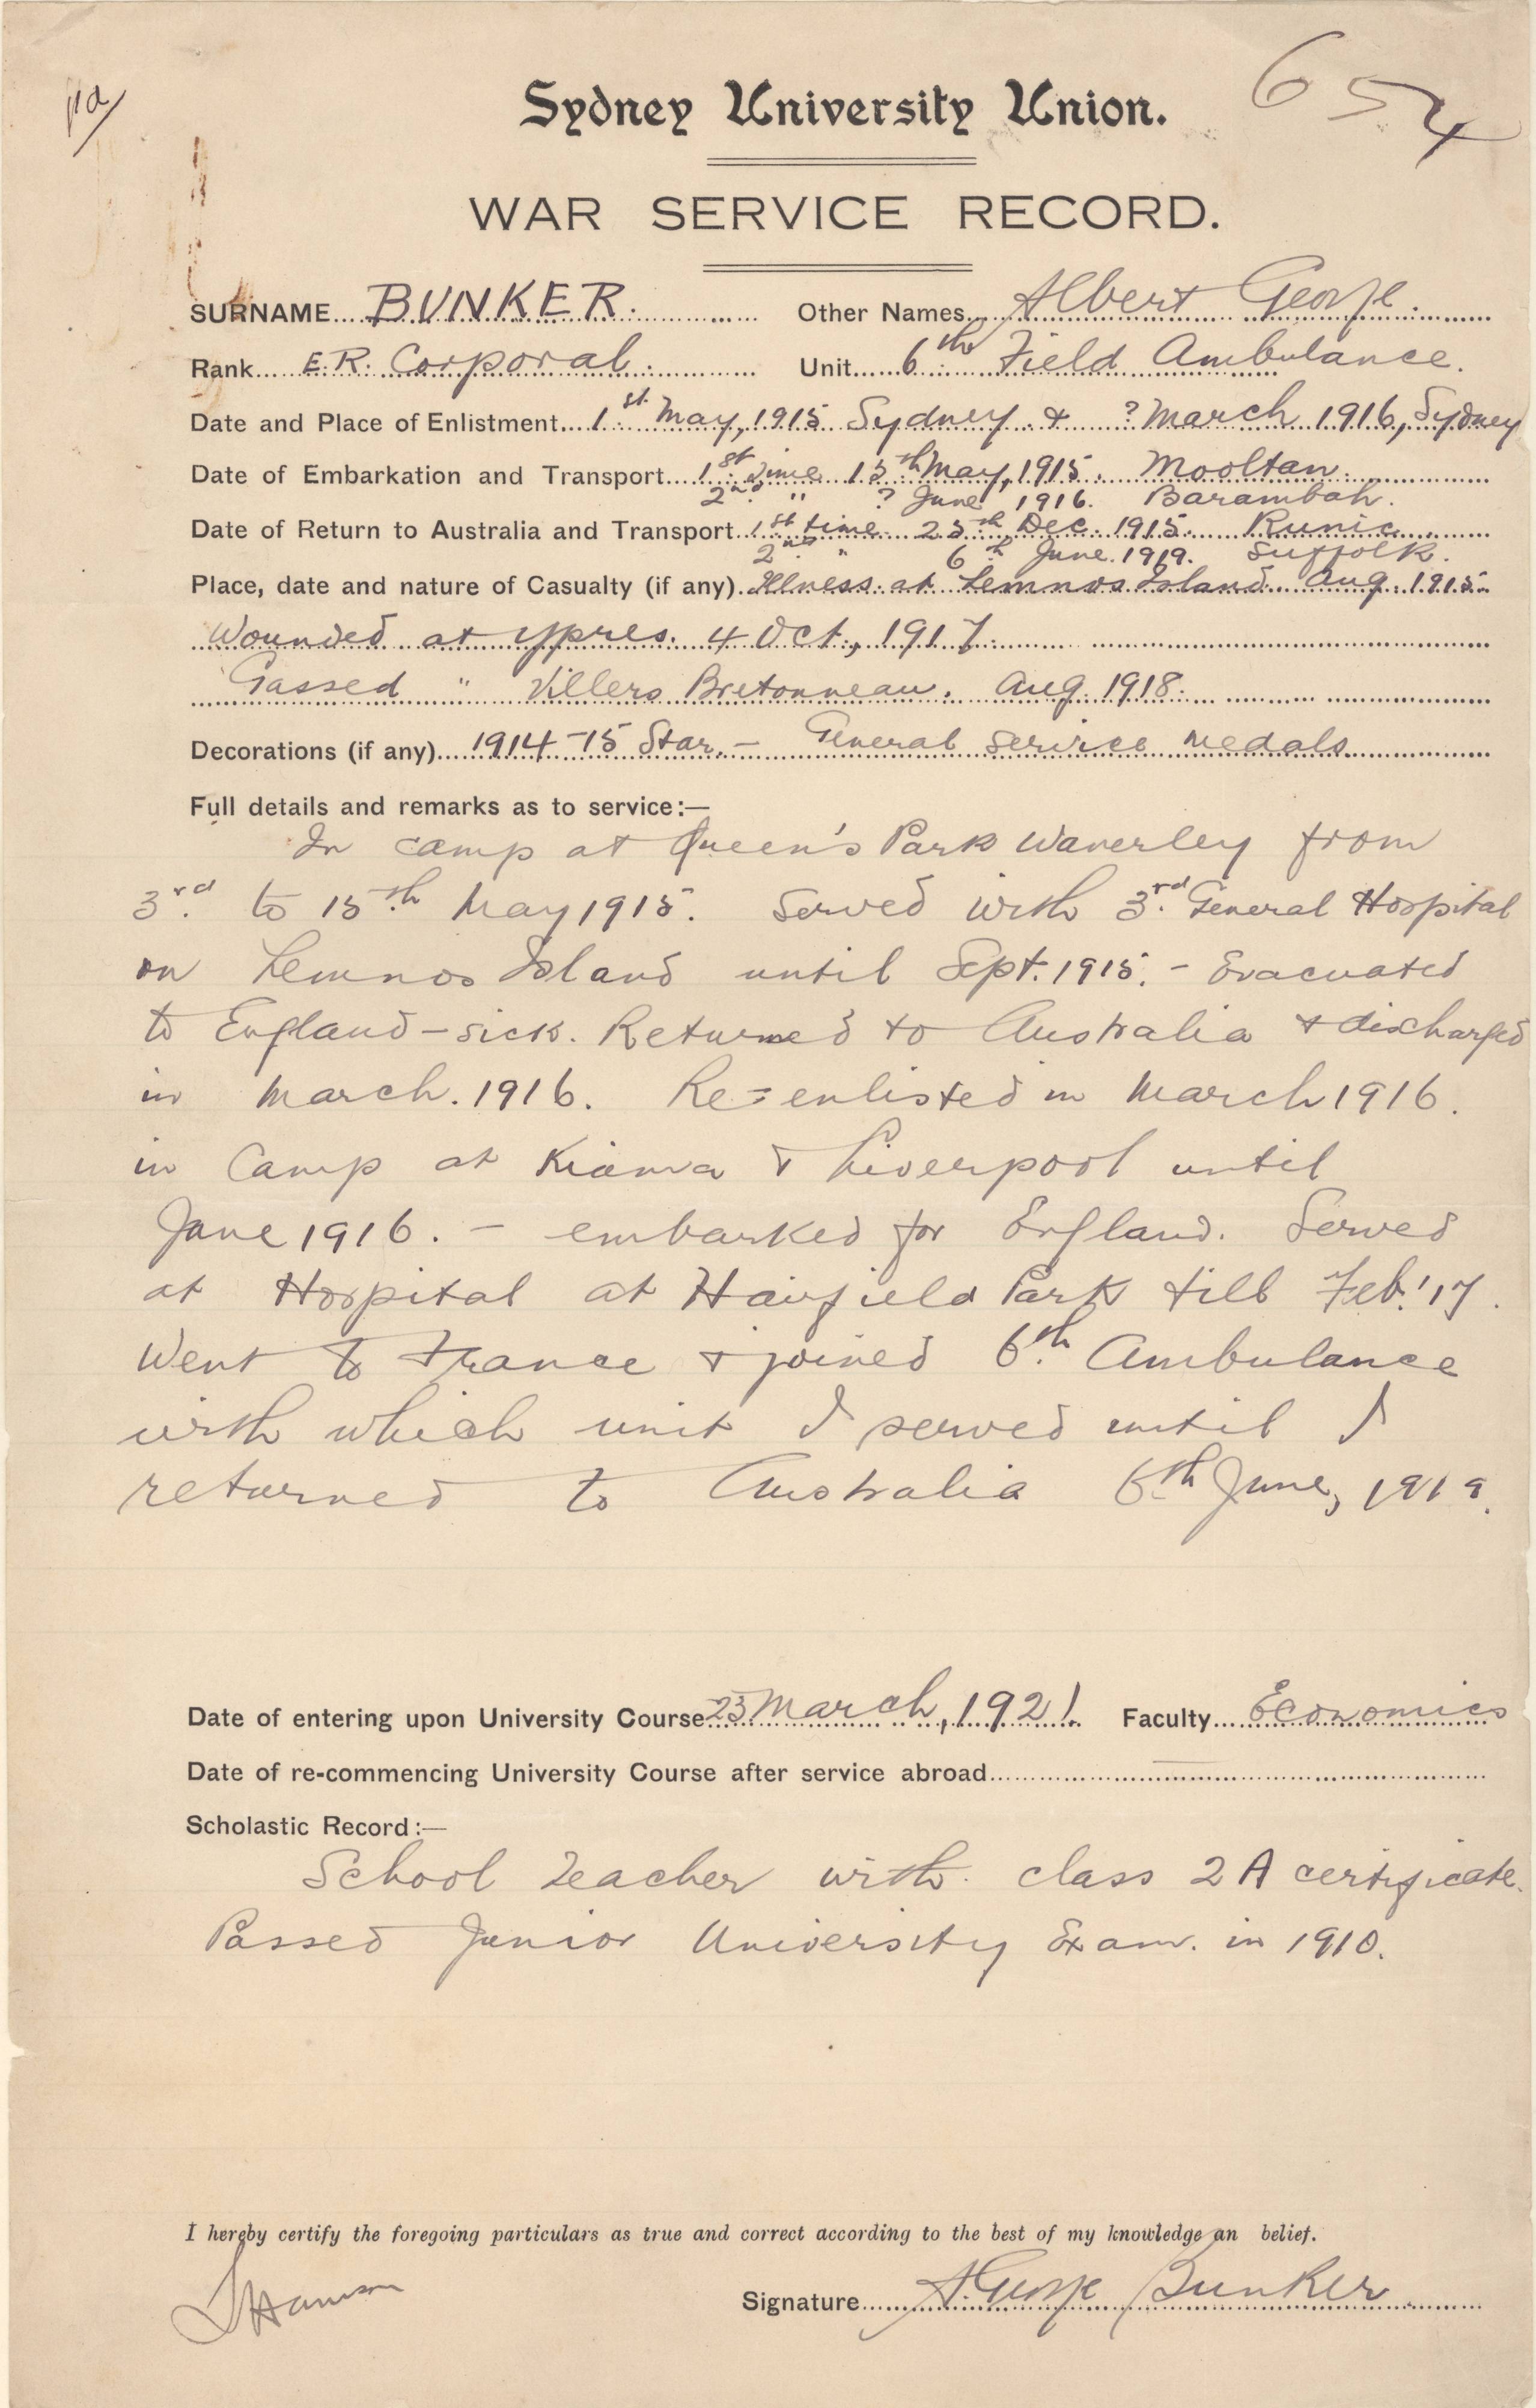 654
Sydney University Union.
WAR SERVICE RECORD.
SURNAME BUNKER. Other Names Albert George.
Rank E.R. Corporal. Unit 6th Field Ambulance.
Date and Place of Enlistment 1st May, 1915 Sydney & ? March 1916, Sydney
Date of Embarkation and Transport 1st Time 15th May, 1915. Mooltan.
2nd " ? June 1916. Barambah.
Date of Return to Australia and Transport 1st time 25th Dec. 1915. Runic
2nd " 6th June. 1919. Suffolk.
Place, date and nature of Casualty (if any) Illness at Lemnos Island Aug. 1915.
Wounded at Ypres. 4 Oct., 1917.
Gassed " Villers Bretonneau. Aug. 1918.
Decorations (if any) 1914-15 Star. - General Service Medals
Full details and remarks as to service:—
In camp at Queen's Park Waverley from
3rd to 15th May 1915. Served with 3rd General Hospital
on Lemnos Island until Sept. 1915. - Evacuated
to England - sick. Returned to Australia & discharged
in March. 1916. Re=enlisted in March 1916.
in Camp at Kiama & Liverpool until
June 1916. - embarked for England. Served
at Hospital at Hairfield Park till Feb. '17.
Went to France & joined 6th Ambulance
with which unit I served until I
returned to Australia 6th June, 1919.
Date of entering upon University Course 23 March, 1921. Faculty Economics
Date of re-commencing University Course after service abroad —
Scholastic Record:—
School Teacher with class 2A certificate.
Passed Junior University Exam. in 1910.
I hereby certify the foregoing particulars as true and correct according to the best of my knowledge an belief.
Signature A. George Bunker